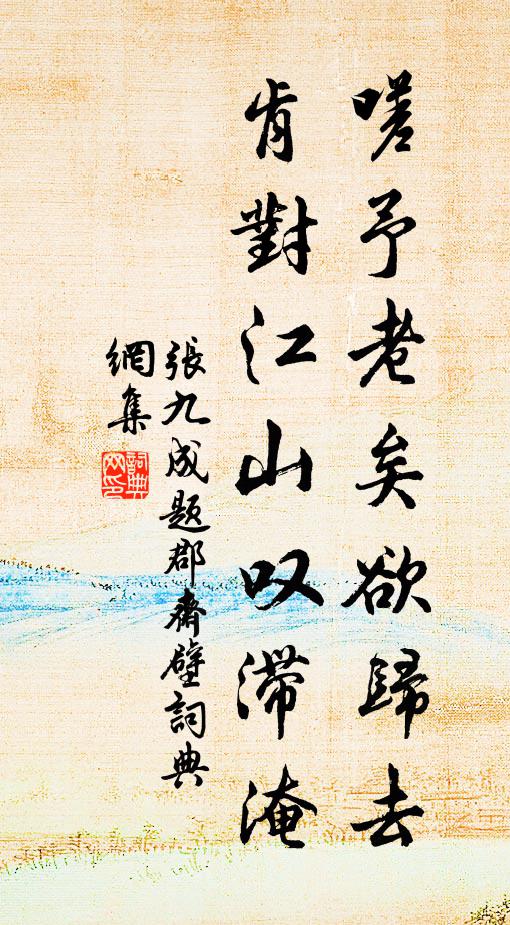 嗟予老矣欲歸去
肯對江山叹滯淹
張九成题郡齋壁詞典
網集
詞典
网印